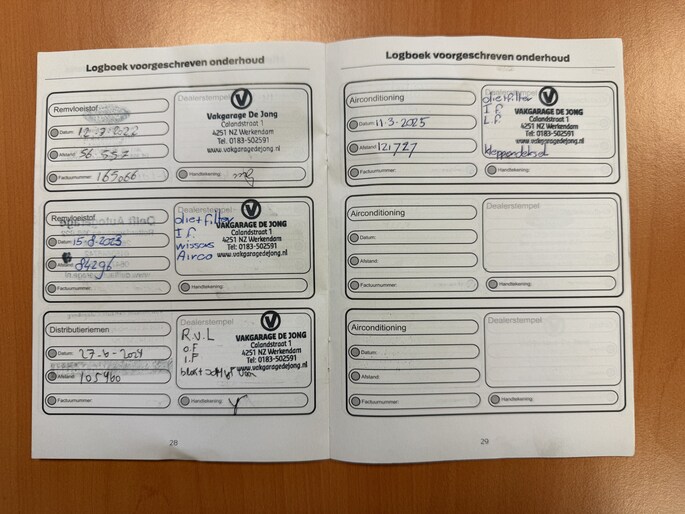 Logboek voorgeschreven onderhoud
Remvloeistof
Datum: 12-7-2022
Afstand: 56.557
Factuurnummer: 165066
Dealerstempel
Vakgarage De Jong
Calandstraat 1
4251 NZ Werkendam
Tel: 0183-502591
www.vakgaragedejong.nl
Handtekening:
Remvloeistof
Datum: 15-8-2023
Afstand: 84296
Factuurnummer:
Dealerstempel
oliefilter
I.F.
wissers
Airco
Vakgarage De Jong
Calandstraat 1
4251 NZ Werkendam
Tel: 0183-502591
www.vakgaragedejong.nl
Handtekening:
Distributieriemen
Datum: 27-6-2024
Afstand: 105460
Factuurnummer:
Dealerstempel
R.V.L
O.F
I.F
VAKGARAGE DE JONG
Calandstraat 1
4251 NZ Werkendam
Tel: 0183-502591
www.vakgaragedejong.nl
Handtekening:
28
Logboek voorgeschreven onderhoud
Airconditioning
Datum: 11-3-2025
Afstand: 121727
Factuurnummer:
Dealerstempel
oliefilter
I.F
L.F
VAKGARAGE DE JONG
Calandstraat 1
4251 NZ Werkendam
Tel: 0183-502591
www.vakgaragedejong.nl
Handtekening:
Airconditioning
Datum:
Afstand:
Factuurnummer:
Dealerstempel
Handtekening:
Airconditioning
Datum:
Afstand:
Factuurnummer:
Dealerstempel
Handtekening:
29